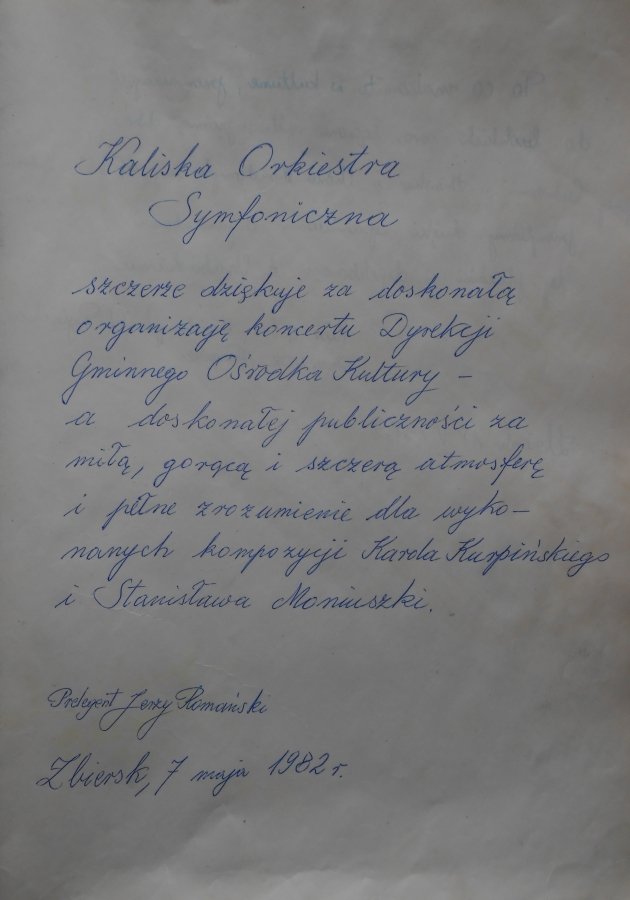 Kaliska Orkiestra
Symfoniczna
szczerze dziękuje za doskonałą
organizację koncertu Dyrekcji
Gminnego Ośrodka Kultury –
a doskonałej publiczności za
miłą, gorącą i szczerą atmosferę
i pełne zrozumienie dla wyko–
nanych kompozycji Karola Kurpińskiego
i Stanisława Moniuszki.
Prelegent Jerzy Romański
Zbiersk, 7 maja 1982 r.